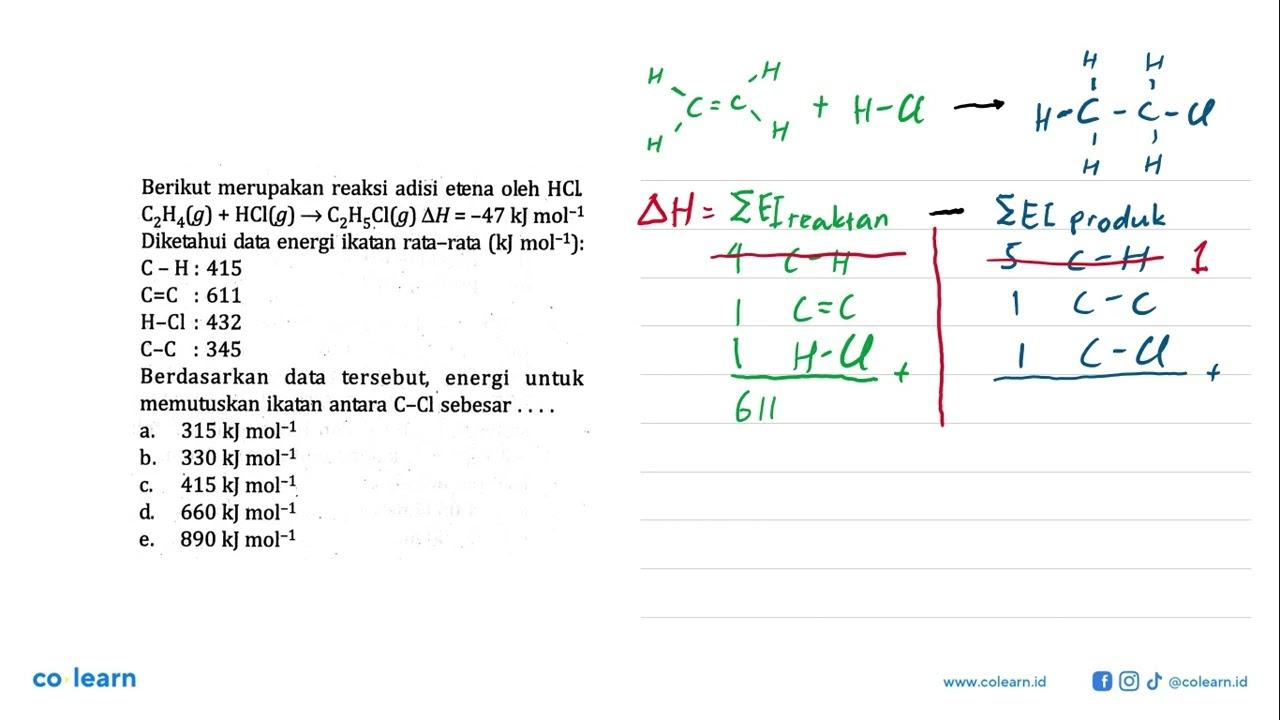 Berikut merupakan reaksi adisi etena oleh HCl.
C₂H₄(g) + HCl(g) → C₂H₅Cl(g) ΔH = –47 kJ mol⁻¹
Diketahui data energi ikatan rata–rata (kJ mol⁻¹):
C – H : 415
C=C : 611
H–Cl : 432
C–C : 345
Berdasarkan data tersebut, energi untuk
memutuskan ikatan antara C–Cl sebesar . . . .
a. 315 kJ mol⁻¹
b. 330 kJ mol⁻¹
c. 415 kJ mol⁻¹
d. 660 kJ mol⁻¹
e. 890 kJ mol⁻¹
H H H H
C = C + H – Cl → H – C – C – Cl
H H H H
ΔH = ΣEI reaktan – ΣEI produk
4 C – H 5 C – H 1
1 C = C 1 C – C
1 H – Cl + 1 C – Cl +
611
co learn
www.colearn.id @colearn.id